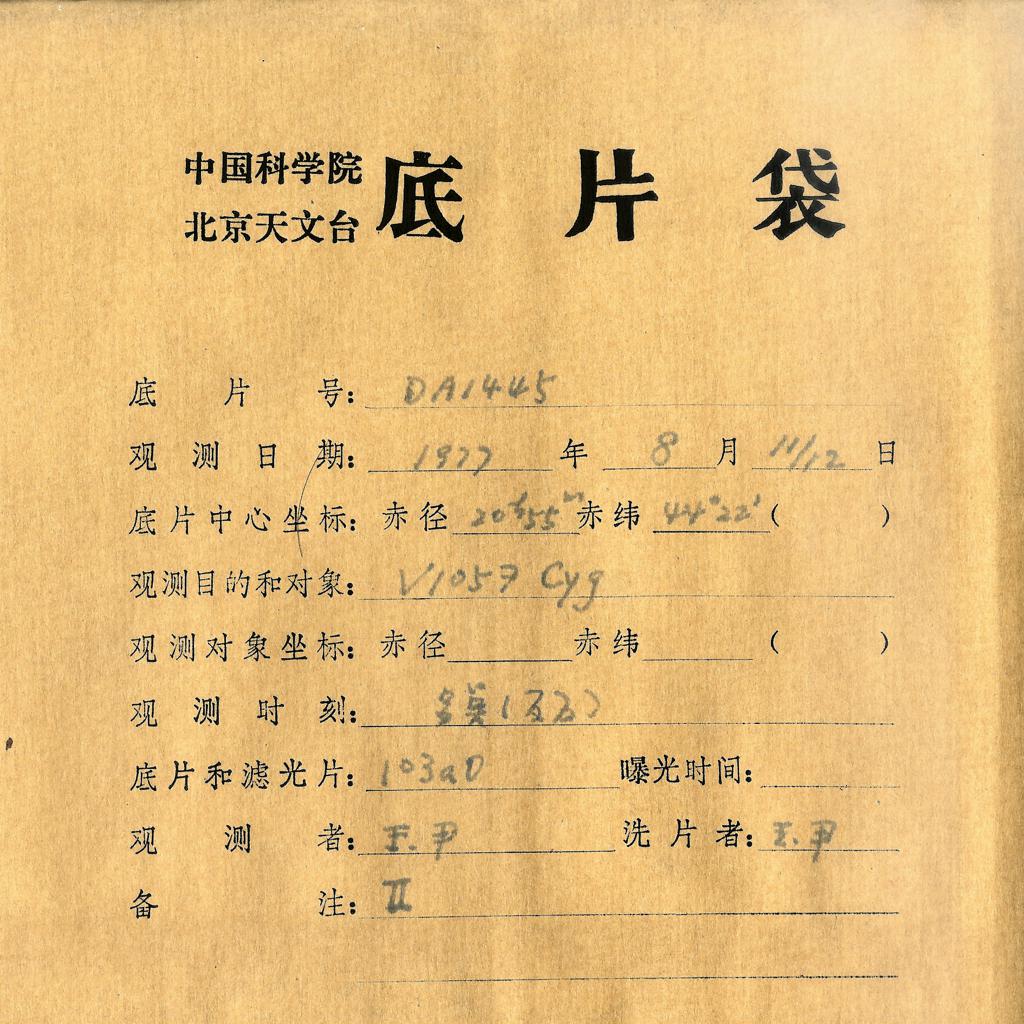 中国科学院
北京天文台
底片袋
底片号: DA1445
观测日期: 1977年8月11/12日
底片中心坐标: 赤径 20ʰ55ᵐ 赤纬 44°22′ ( )
观测目的和对象: V1057 Cyg
观测对象坐标: 赤径 赤纬 ( )
观测时刻:
底片和滤光片: 103aD 曝光时间:
观测者: 王.尹 洗片者: 王.尹
备注: II